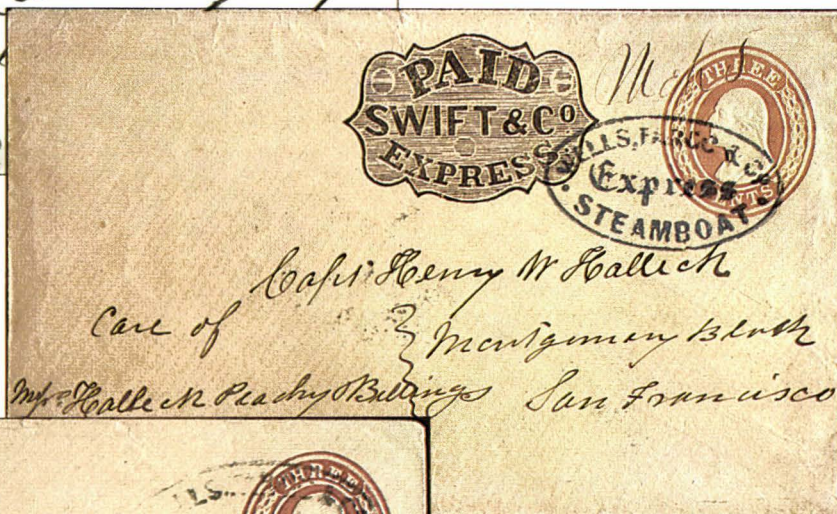 PAID
SWIFT & Co
EXPRESS
THREE
CENTS
WELLS, FARGO & Co
Express
STEAMBOAT
Capt Henry W Halleck
Care of
Montgomery Block
Messrs Halleck Peachy & Billings
San Francisco
THREE